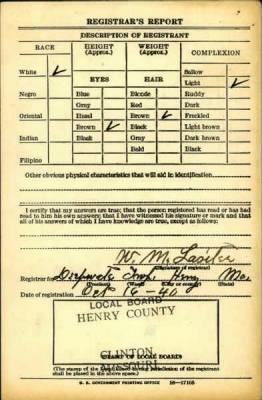 REGISTRAR'S REPORT
DESCRIPTION OF REGISTRANT
RACE
HEIGHT
(Approx.)
WEIGHT
(Approx.)
COMPLEXION
White ✓
EYES
HAIR
Sallow
Light ✓
Negro
Blue
Blonde
Ruddy
Gray
Red
Dark
Oriental
Hazel
Brown ✓
Freckled
Brown ✓
Black
Light brown
Indian
Black
Gray
Dark brown
Bald
Black
Filipino
Other obvious physical characteristics that will aid in identification
I certify that my answers are true; that the person registered has read or has had
read to him his own answers; that I have witnessed his signature or mark and that
all of his answers of which I have knowledge are true, except as follows:
W. M. Lasiter
(Signature of registrar)
Registrar for Deepwater Twp. Henry Mo.
(Precinct) (Ward) (City or county) (State)
Date of registration Oct 16-40
LOCAL BOARD
HENRY COUNTY
CLINTON
MISSOURI
(STAMP OF LOCAL BOARD)
(The stamp of the Local Board having jurisdiction of the registrant
shall be placed in the above space.)
U. S. GOVERNMENT PRINTING OFFICE 16—17105